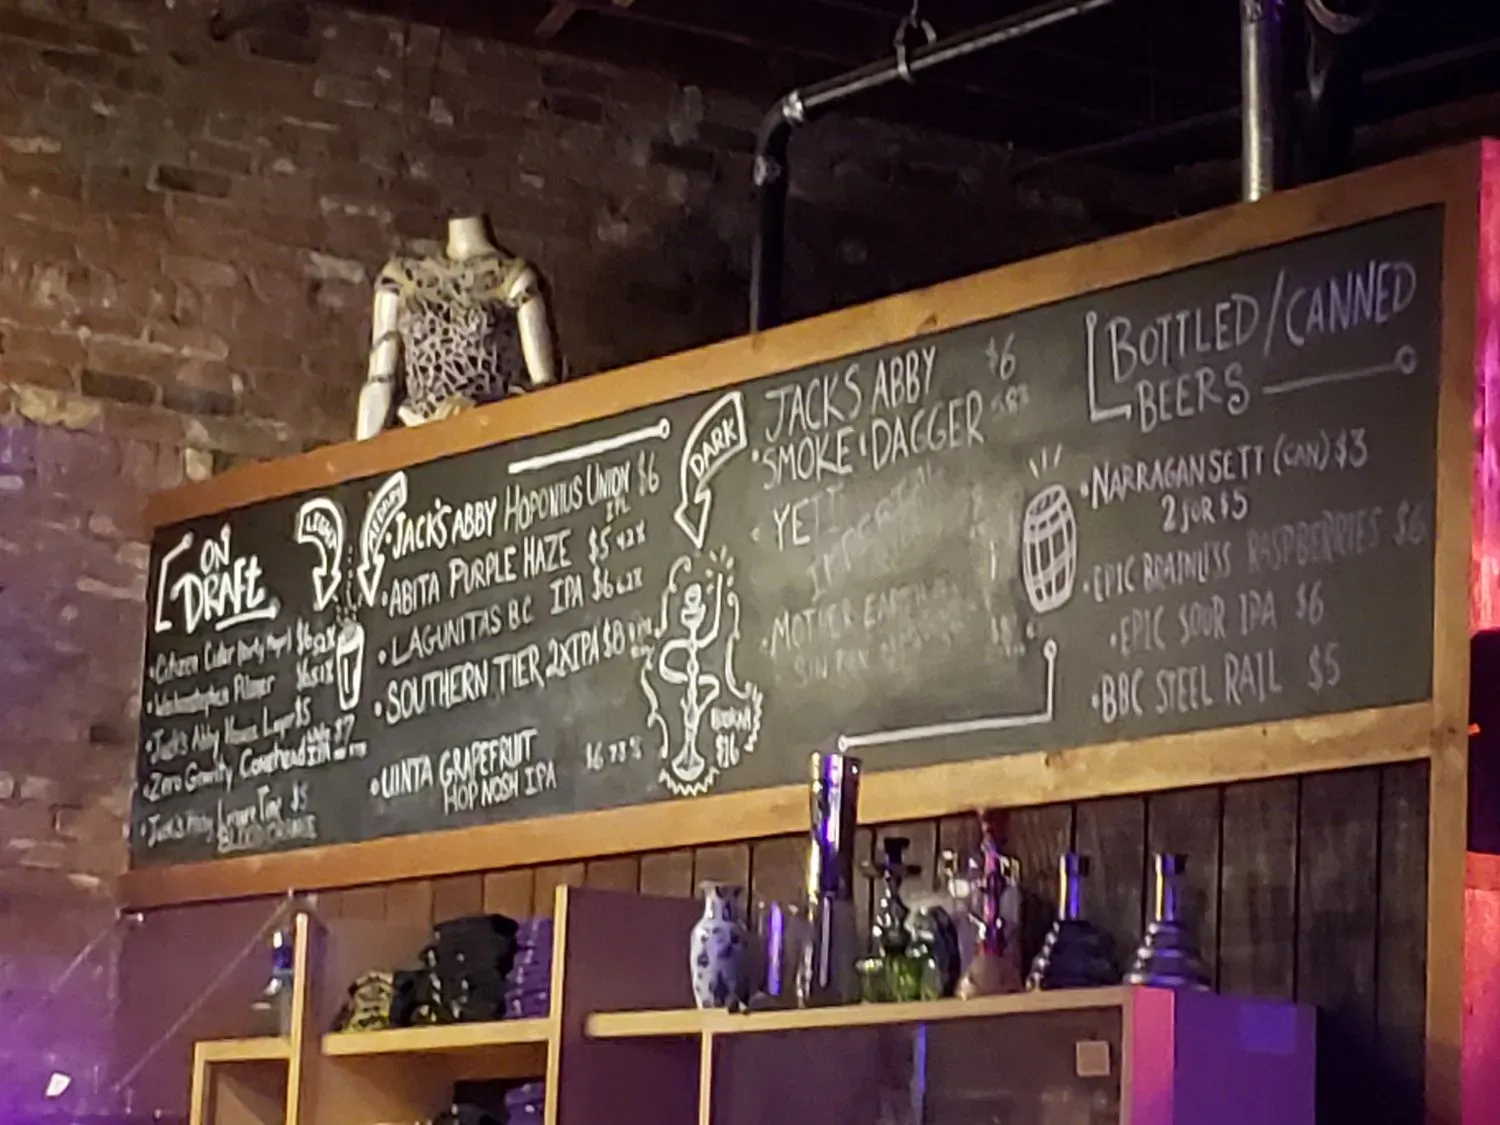 ON
DRAFT
LIGHT
• Citizen Cider
$6
Pilsner
• Jack's Abby House Lager $5
• Zero Gravity Conehead IPA $7
• Jack's Abby
$5
BLOOD ORANGE
• JACK'S ABBY HOPONIUS UNION $6
IPL
• ABITA PURPLE HAZE $5 4.2%
• LAGUNITAS B.C. IPA $6 6.2%
• SOUTHERN TIER 2XIPA $8
• UINTA GRAPEFRUIT
HOP NOSH IPA
$6 7.3%
DARK
HOOKAH
$16
JACKS ABBY $6
• SMOKE & DAGGER 5.8%
• YETI
• MOTHER EARTH
SIN TAX
BOTTLED/CANNED
BEERS
• NARRAGANSETT (CAN) $3
2 for $5
• EPIC BRAINLESS RASPBERRIES $6
• EPIC SOUR IPA $6
• BBC STEEL RAIL $5